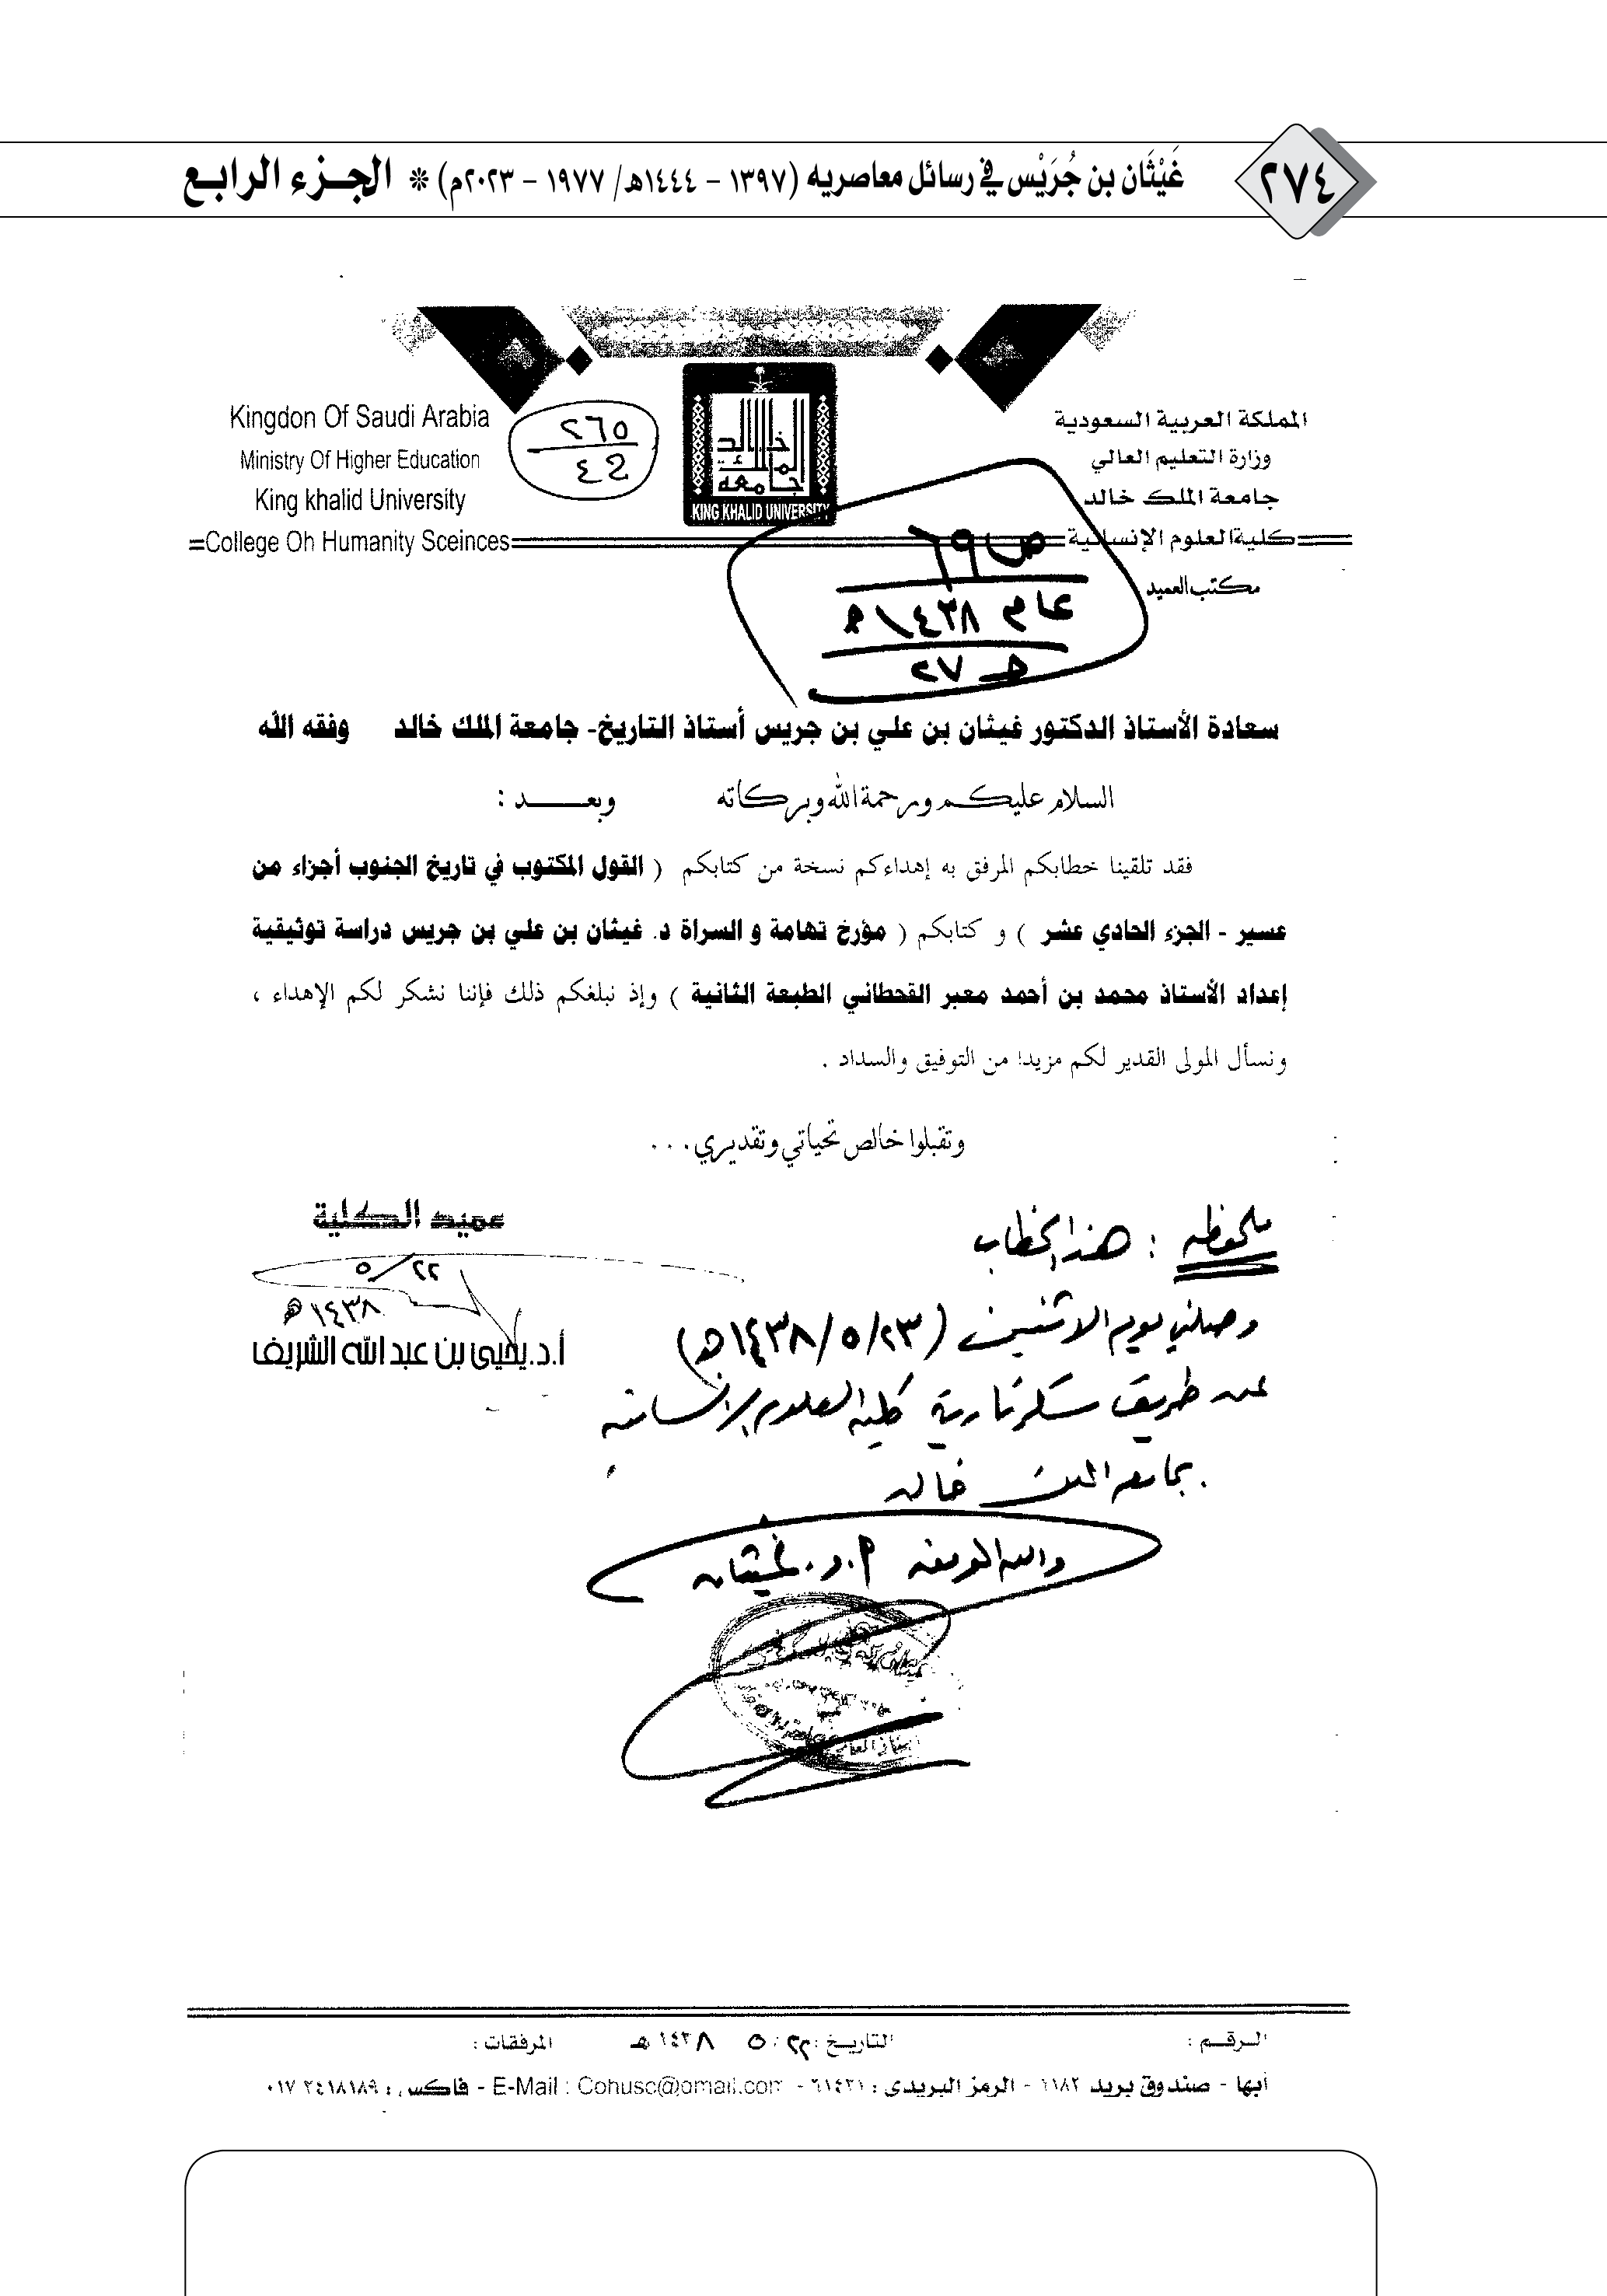 ٢٧٤
غَيْثَان بن جُرَيْس في رسائل معاصريه (١٣٩٧ - ١٤٤٤هـ/ ١٩٧٧ - ٢٠٢٣م) * الجزء الرابع
المملكة العربية السعودية
وزارة التعليم العالي
جامعة الملك خالد
كلية العلوم الإنسانية
مكتب العميد
Kingdon Of Saudi Arabia
Ministry Of Higher Education
King khalid University
College Oh Humanity Sceinces
٢٦٥
جامعة الملك خالد
KING KHALID UNIVERSITY
ص ٦٩
عام ١٤٣٨هـ
هـ ٢٧
سعادة الأستاذ الدكتور غيثان بن علي بن جريس أستاذ التاريخ- جامعة الملك خالد وفقه الله
السلام عليكم ورحمة الله وبركاته وبعــــد :
فقد تلقينا خطابكم المرفق به إهداءكم نسخة من كتابكم ( القول المكتوب في تاريخ الجنوب أجزاء من
عسير - الجزء الحادي عشر ) و كتابكم ( مؤرخ تهامة و السراة د. غيثان بن علي بن جريس دراسة توثيقية
إعداد الأستاذ محمد بن أحمد معبر القحطاني الطبعة الثانية ) وإذ نبلغكم ذلك فإننا نشكر لكم الإهداء ،
ونسأل المولى القدير لكم مزيدا من التوفيق والسداد .
وتقبلوا خالص تحياتي وتقديري . . .
عميد الكلية
٢٢/٥
١٤٣٨هـ
أ.د. يحيى بن عبد الله الشريف
ملحوظه : هذا الخطاب
وصلني يوم الاثنين (٢٣/٥/١٤٣٨هـ)
عن طريق سكرتارية كلية العلوم الإنسانية
بجامعة الملك خالد
والله الموفق أ.د. غيثان
الـرقــم : التاريـخ : ٢٢/ ٥ ١٤٣٨ هـ المرفقات :
أبها - صندوق بريد ١١٨٢ - الرمز البريدي : ٦١٤٢١ - E-Mail : Cohusc@gmail.com - فاكس : ٠١٧ ٢٤١٨١٨٩